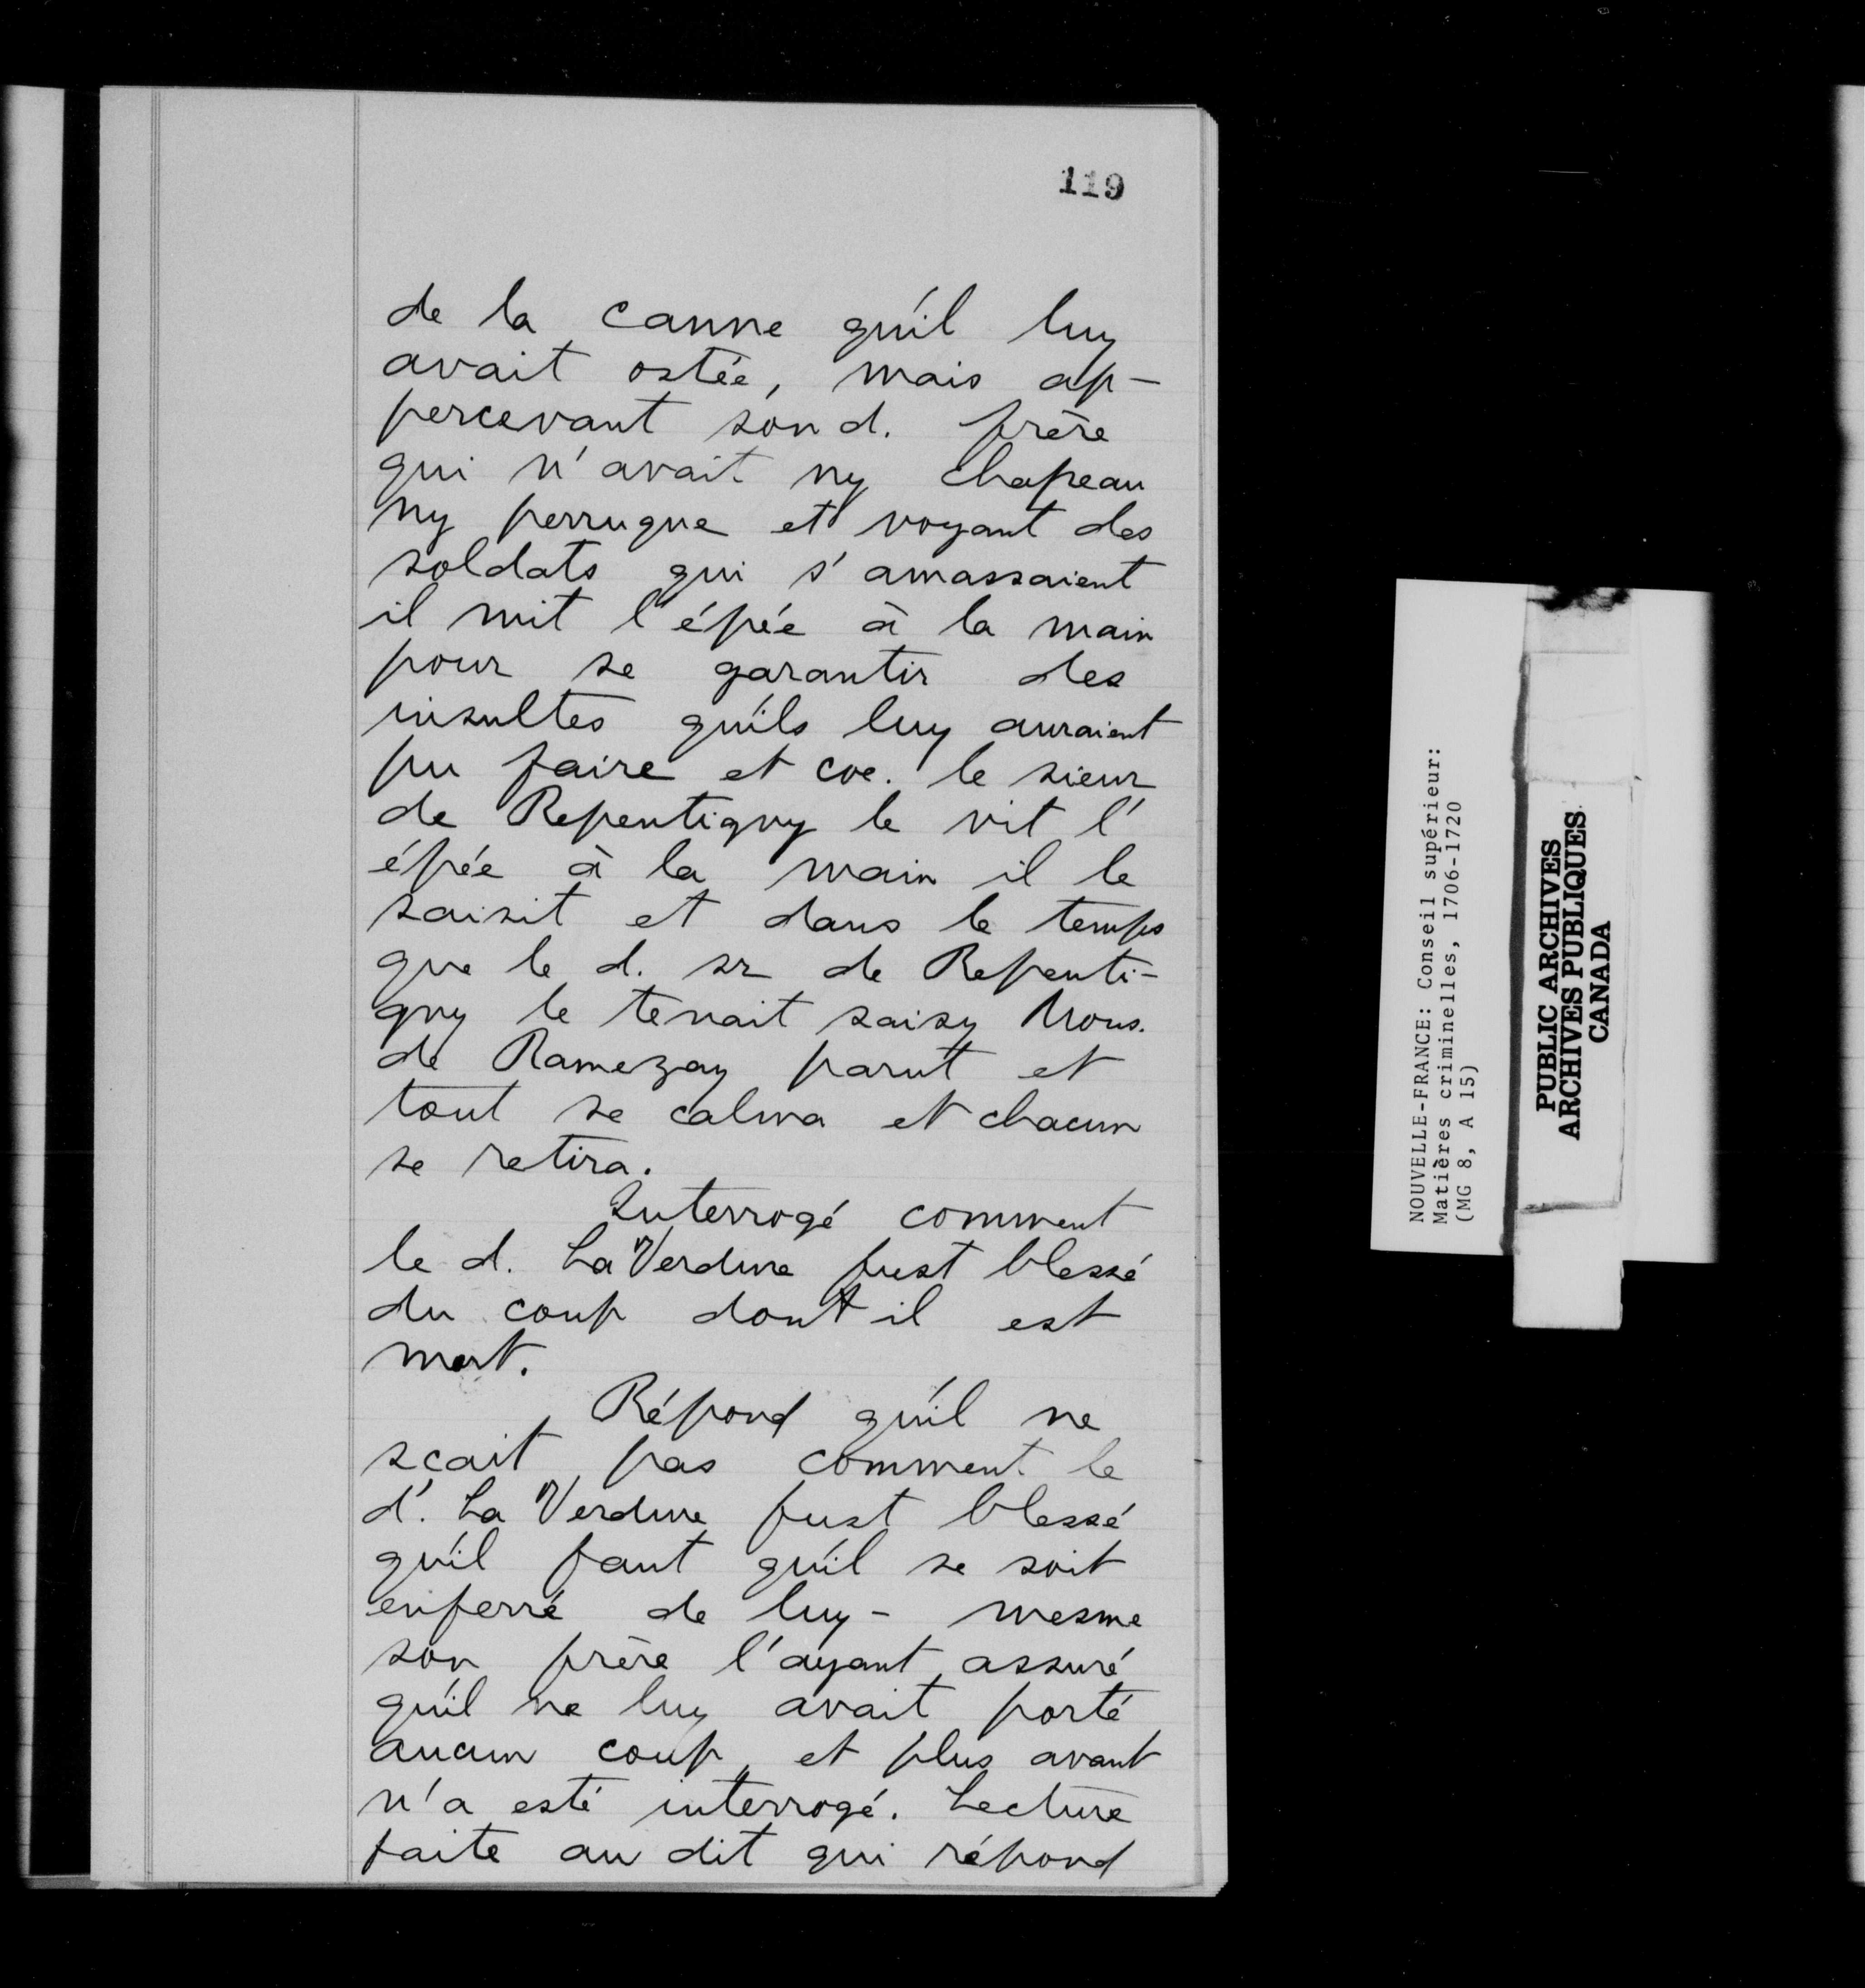 119
de la canne qu'il luy
avait ostée, mais ap-
percevant son d. frère
qui n'avait ny chapeau
ny perruque et voyant des
soldats qui s'amassaient
il mit l'épée à la main
pour se garantir des
insultes qu'ils luy auraient
pu faire et coe. le sieur
de Repentigny le vit l'
épée à la main il le
saisit et dans le temps
que le d. sr de Repenti-
gny le tenait saisy Mons.
de Ramezay parut et
tout se calma et chacun
se retira.
Interrogé comment
le d. La Verdure fust blessé
du coup dont il est
mort.
Répond qu'il ne
scait pas comment le
d. La Verdure fust blessé
qu'il faut qu'il se soit
enferré de luy-mesme
son frère l'ayant assuré
qu'il ne luy avait porté
aucun coup, et plus avant
n'a esté interrogé. Lecture
faite au dit qui répond
NOUVELLE-FRANCE: Conseil supérieur:
Matières criminelles, 1706-1720
(MG 8, A 15)
PUBLIC ARCHIVES
ARCHIVES PUBLIQUES
CANADA